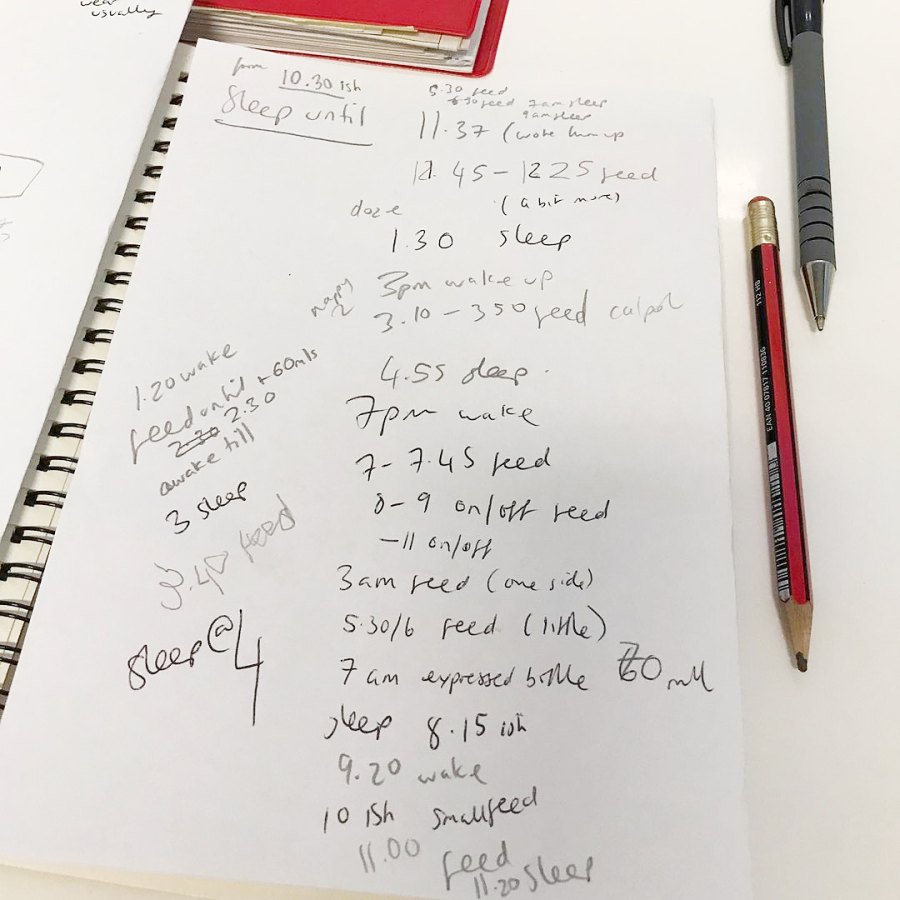 usually
from 10.30 ish
sleep until
5.30 feed
6.30 feed 7am sleep
9am sleep
11.37 (woke him up
11.45 - 12 25 feed
(a bit more)
doze
1.30 sleep
3pm wake up
nappy
2
3.10 - 3 50 feed calpol
4.55 sleep
7pm wake
7 - 7.45 feed
8 - 9 on/off feed
- 11 on/off
3 am feed (one side)
5.30/6 feed (little)
7 am expressed bottle 60 mll
sleep 8.15 ish
9.20 wake
10 ISH small feed
11.00 feed
11.20 sleep
1.20 wake
feed until + 60mls
2.30 2.30
awake till
3 sleep
3.40 feed
sleep @ 4
112 HB
EAN 40 07817 110636